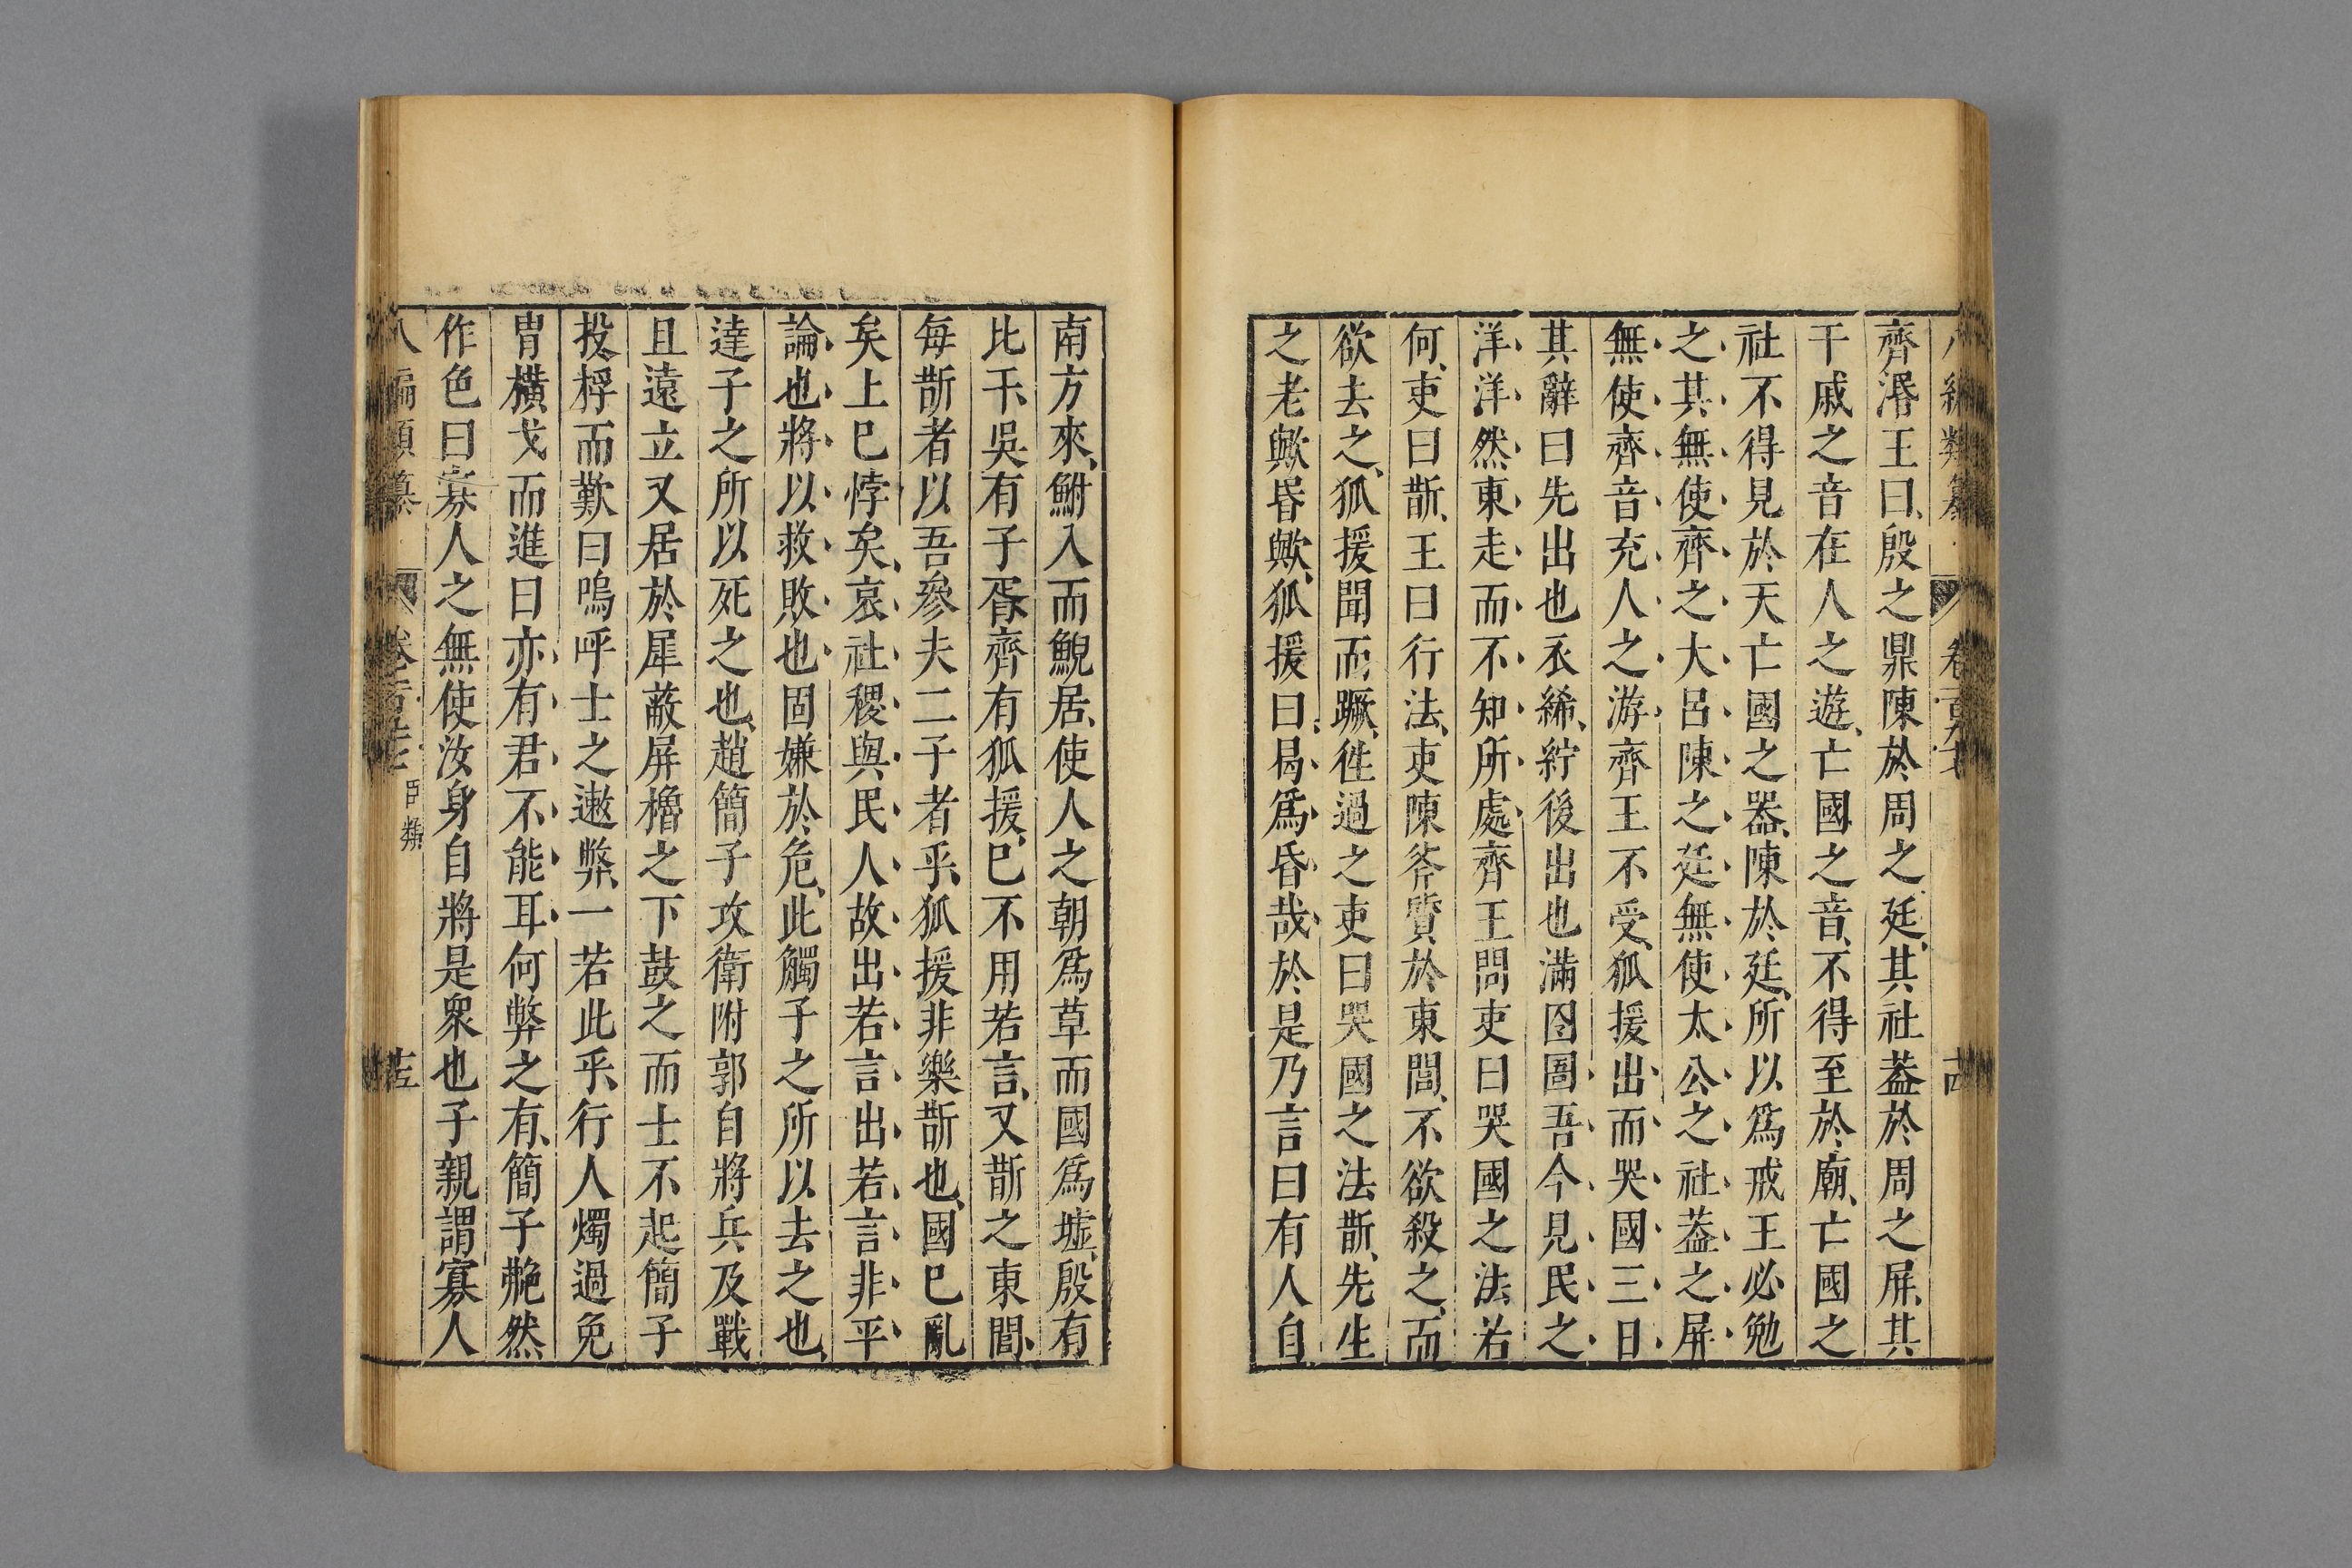 齊湣王曰殷之鼎陳於周之廷其社葢於周之屏其
干戚之音在人之遊亡國之音不得至於廟亡國之
社不得見於天亡國之器陳於廷所以爲戒王必勉
之其無使齊之大呂陳之廷無使太公之社葢之屏
無使齊音充人之游齊王不受狐援出而哭國三日
其辭曰先出也衣絺紵後出也滿囹圄吾今見民之
洋洋然東走而不知所處齊王問吏曰哭國之法若
何吏曰斮王曰行法吏陳斧質於東閭不欲殺之而
欲去之狐援聞而蹶徃過之吏曰哭國之法斮先生
之老歟昬歟狐援曰曷爲昏哉於是乃言曰有人自
南方來鮒入而鯢居使人之朝爲草而國爲墟殷有
比干吳有子胥齊有狐援已不用若言又斮之東閭
每斮者以吾參夫二子者乎狐援非樂斮也國巳亂
矣上巳悖矣哀社稷與民人故出若言出若言非平
論也將以救敗也固嫌於危此觸子之所以去之也
達子之所以死之也趙簡子攻衛附郭自將兵及戰
且遠立又居於犀蔽屏櫓之下鼓之而士不起簡子
投桴而歎曰嗚呼士之遬弊一若此乎行人燭過免
胄橫戈而進曰亦有君不能耳何弊之有簡子艴然
作色曰寡人之無使汝身自將是衆也子親謂寡人
八編類纂 卷 臣類